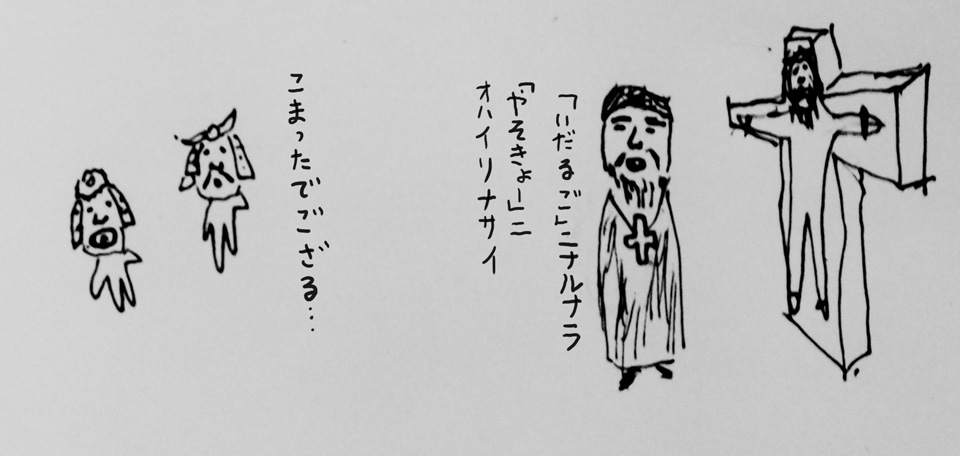 「いだるご」ニナルナラ
「やそきょー」ニ
オハイリナサイ
こまったでござる…